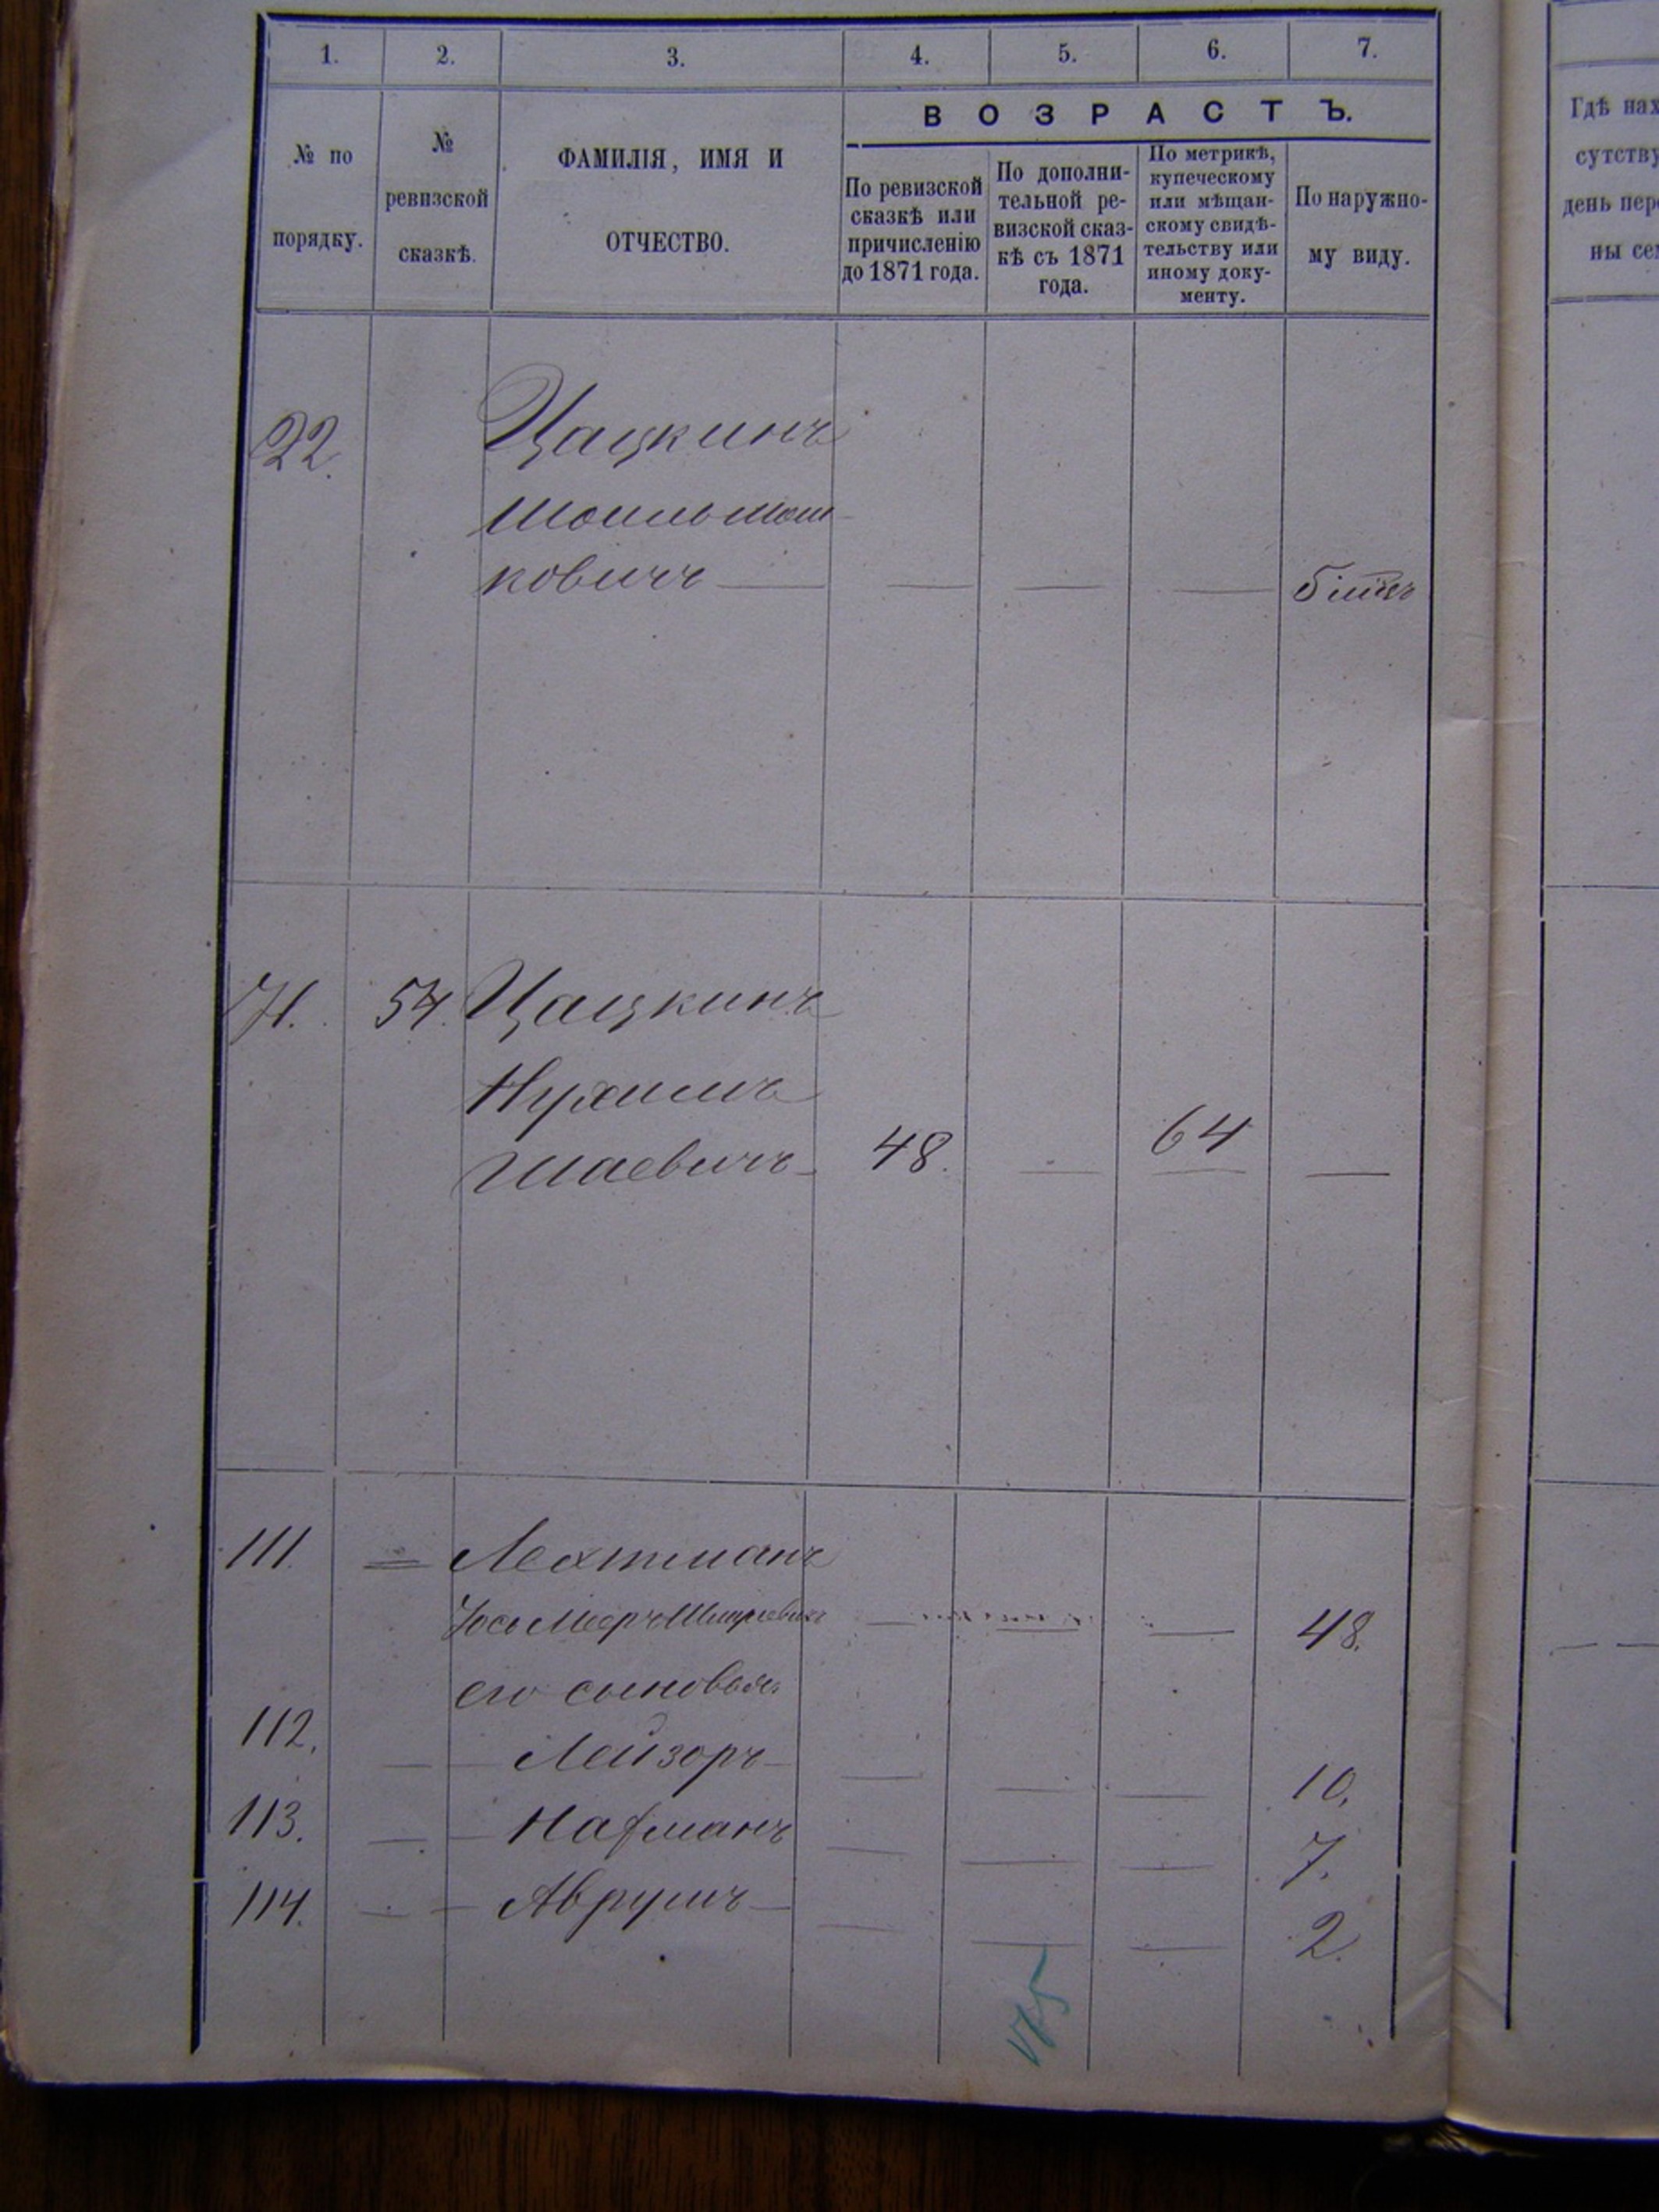 1. 2. 3. 4. 5. 6. 7.
№ по порядку.
№ ревизской сказкѣ.
ФАМИЛІЯ, ИМЯ И
ОТЧЕСТВО.
ВОЗРАСТЪ.
По ревизской
сказкѣ или
причисленію
до 1871 года.
По дополни-
тельной ре-
визской сказ-
кѣ съ 1871
года.
По метрикѣ,
купеческому
или мѣщан-
скому свидѣ-
тельству или
иному доку-
менту.
По наружно-
му виду.
Гдѣ нах
сутству
день пер
ны се
22. Цацкинъ
Шоиль Мош
ковичъ — — — —
71. 54. Цацкинъ
Нухимъ
Шаевичъ 48. — 64 —
111. Лехтманъ
Іось Мееръ — — — 48.
его сыновья.
112. — Лейзоръ — — — 10.
113. — Нахманъ — — — 7.
114. — Аврумъ — — — 2.
175